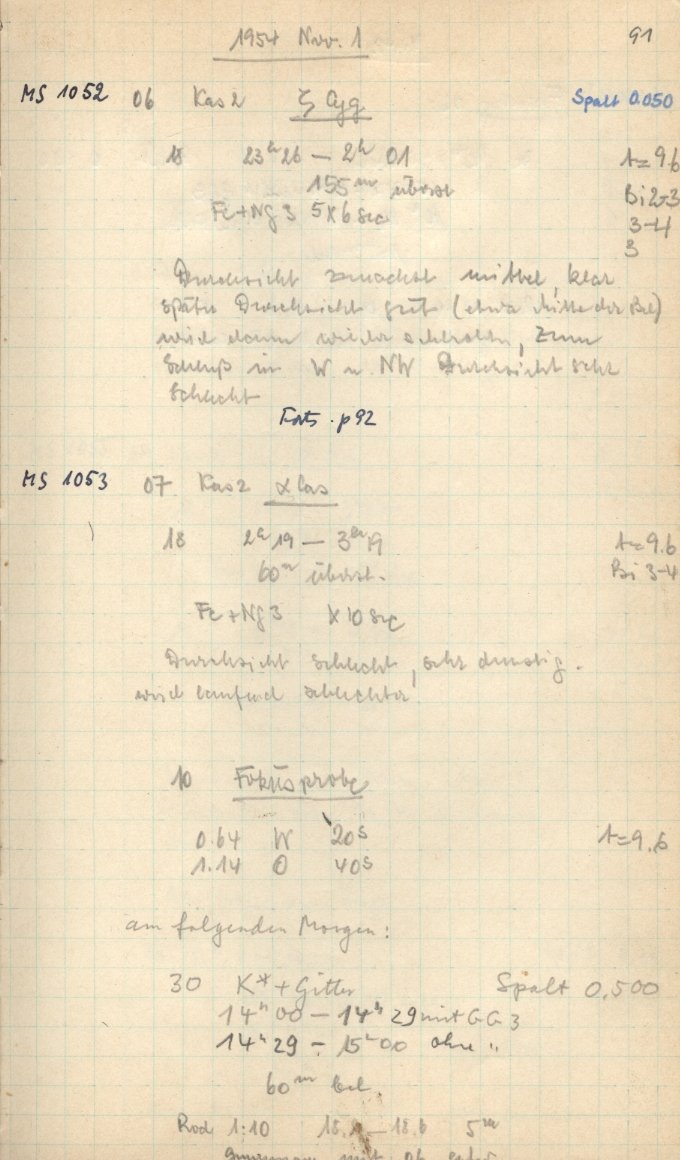 1954 Nov. 1 91
MS 1052 06 Kas 2 ζ Cyg Spalt 0.050
18 23h 26 — 2h 01 t=9.6
155m überst Bi 2-3
Fe+Ng 3 5x6 sec 3-4
3
Durchsicht zunächst mittel, klar
später Durchsicht gut (etwa Mitte der Bel)
wird dann wieder schlechter, Zum
Schluß in W u NW Durchsicht sehr
schlecht
Forts. p 92
MS 1053 07 Kas 2 α Cas
18 2h 19 — 3h 19 t=9.6
60m überst. Bi 3-4
Fe+Ng 3 x 10 sec
Durchsicht schlecht, sehr dunstig.
wird laufend schlechter
10 Fokusprobe
0.64 W 20s t=9.6
1.14 O 40s
am folgenden Morgen:
30 K* + Gitter Spalt 0.500
14h 00 — 14h 29 mit GG 3
14h 29 — 15h 00 ohne "
60m bel.
Rod 1:10 18.6 5m
mit